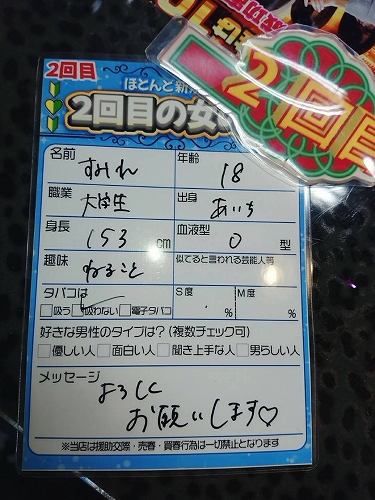 2回目
ほとんど新
2回目の女
2回目
名前 すみれ
年齢 18
職業 大学生
出身 あいち
身長 153 cm
血液型 O 型
趣味 ねること
似てると言われる芸能人等
タバコは
吸う 吸わない 電子タバコ
S度 %
M度 %
好きな男性のタイプは？(複数チェック可)
優しい人 面白い人 聞き上手な人 男らしい人
メッセージ
よろしく
お願いします♡
※当店は援助交際・売春・買春行為は一切禁止となります